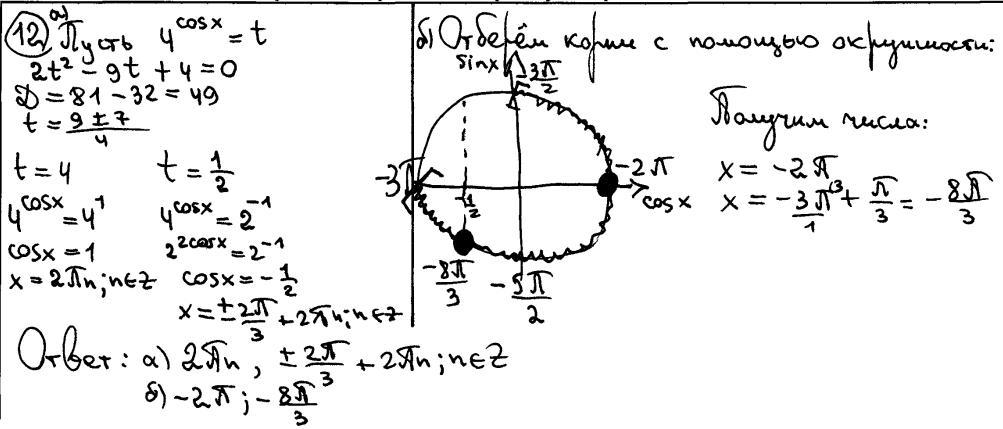 12 а) Пусть 4^cosx = t
2t² - 9t + 4 = 0
D = 81 - 32 = 49
t = (9 ± 7)/4
t = 4 t = 1/2
4^cosx = 4¹ 4^cosx = 2^-1
cosx = 1 2^2cosx = 2^-1
x = 2πn; n∈Z cosx = -1/2
x = ± 2π/3 + 2πn; n∈Z
б) Отберём корни с помощью окружности:
sinx
-3π/2
Получим числа:
-3π
-2π
x = -2π
-1/2
cosx
x = -3π/1 \3 + π/3 = -8π/3
-8π/3
-5π/2
Ответ: а) 2πn, ± 2π/3 + 2πn; n∈Z
б) -2π; -8π/3